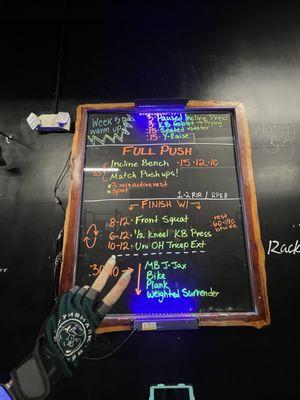 Week 5
warm up
3· Paused Incline Press
KB Goblet → Prying
:15· Seated rotator
:15· Y-Raise
FULL PUSH
Incline Bench ·15·12·10
Match Pushups!
*3 min active rest
*spot
1-2 RIR / RPE 8
FINISH W/
8-12· Front Squat
6-12· ½ Kneel KB Press
10-12· Uni OH Tricep Ext
rest
:60-:90
MB J-Jax
Bike
Plank
Weighted Surrender